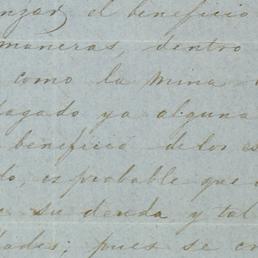 anzar el beneficio
maneras, dentro
como la mina
pagado ya alguna
benefició de los es
do, es probable que
su deuda y tal
dades; pues se cr